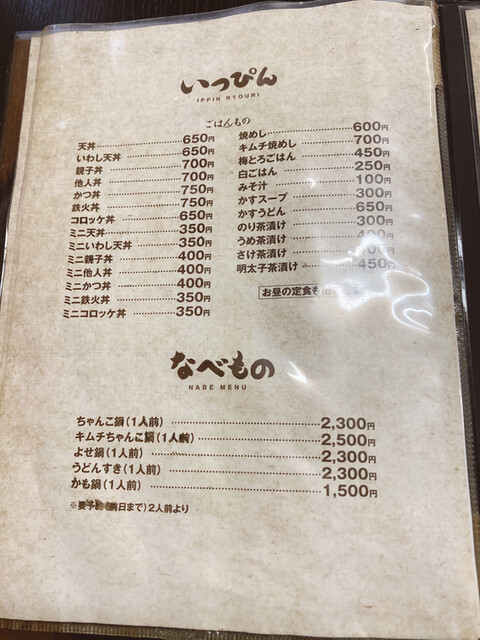 いっぴん
IPPIN RYOURI
ごはんもの
天丼 650円
いわし天丼 650円
親子丼 700円
他人丼 700円
かつ丼 750円
鉄火丼 750円
コロッケ丼 650円
ミニ天丼 350円
ミニいわし天丼 350円
ミニ親子丼 400円
ミニ他人丼 400円
ミニかつ丼 400円
ミニ鉄火丼 350円
ミニコロッケ丼 350円
焼めし 600円
キムチ焼めし 700円
梅とろごはん 450円
白ごはん 250円
みそ汁 100円
かすスープ 300円
かすうどん 650円
のり茶漬け 300円
うめ茶漬け 00円
さけ茶漬け 00円
明太子茶漬け 450円
お昼の定食も
なべもの
NABE MENU
ちゃんこ鍋(1人前) 2,300円
キムチちゃんこ鍋(1人前) 2,500円
よせ鍋(1人前) 2,300円
うどんすき(1人前) 2,300円
かも鍋(1人前) 1,500円
※要予 前日まで)2人前より